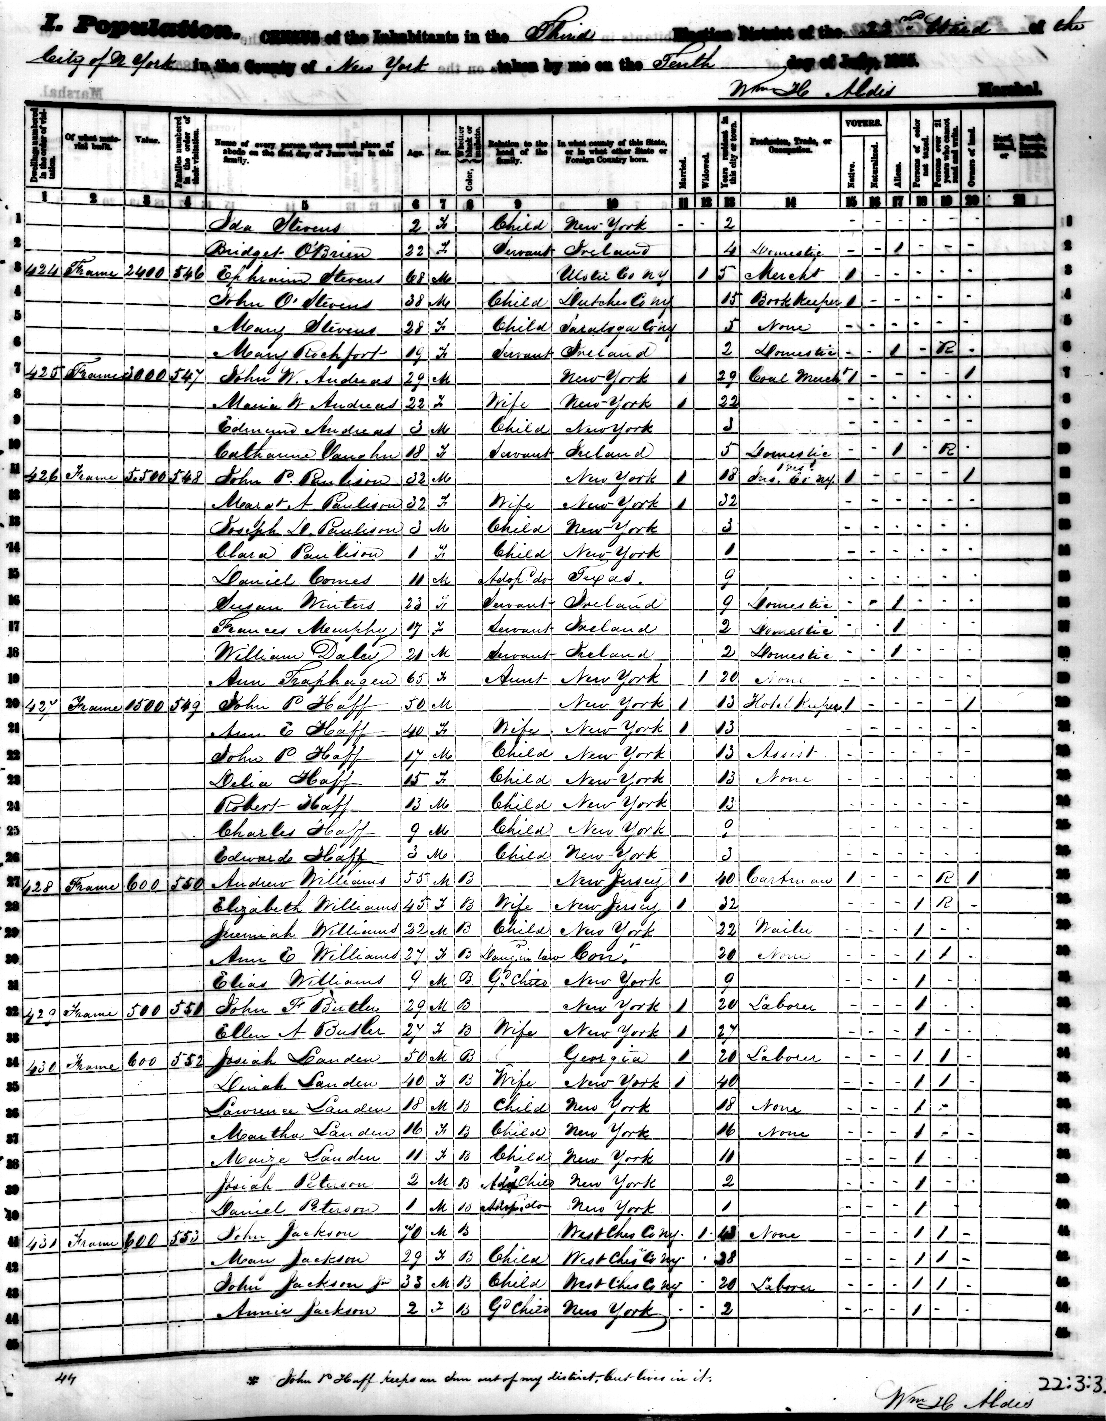 I. Population. CENSUS of the Inhabitants in the Third Election District of the 22nd Ward of the
City of N York in the County of New York taken by me on the Tenth day of July, 1855.
Wm H Aldis Marshal.
Dwellings numbered in the order of visitation. Of what material built. Value. Families numbered in the order of their visitation. Name of every person whose usual place of abode on the first day of June was in this family. Age. Sex. Color, Whether black or mulatto. Relation to the head of the family. In what county of this State, or in what other State or Foreign Country born. Married. Widowed. Years resident in this city or town. Profession, Trade, or Occupation. VOTERS. Native. Naturalized. Aliens. Persons of color not taxed. Persons over 21 years who cannot read and write. Owners of land.
1 2 3 4 5 6 7 8 9 10 11 12 13 14 15 16 17 18 19 20 21
1 Ida Stevens 2 F Child New York - - 2 1
2 Bridget O'Brien 22 F Servant Ireland 4 Domestic - - 1 - - - 2
3 424 Frame 2400 546 Ephraim Stevens 68 M Ulster Co NY 1 5 Mercht 1 - - - - - 3
4 John O. Stevens 38 M Child Dutches Co NY 15 Book Keeper 1 - - - - - 4
5 Mary Stevens 28 F Child Saratoga Co NY 5 None - - - - - - 5
6 Mary Rochfort 19 F Servant Ireland 2 Domestic - - 1 - R - 6
7 425 Frame 3000 547 John W. Andreas 29 M New York 1 29 Coal Mercht 1 - - - - 1 7
8 Maria W Andreas 22 F Wife New York 1 22 8
9 Edmund Andreas 3 M Child New York 3 9
10 Catharine Vaughn 18 F Servant Ireland 5 Domestic - - 1 - R - 10
11 426 Frame 5.500 548 John P. Paulison 32 M New York 1 18 Pres. Ins. Co NY 1 - - - - 1 11
12 Margt A Paulison 32 F Wife New York 1 32 12
13 Joseph D. Paulison 3 M Child New York 3 13
14 Clara Paulison 1 F Child New York 1 14
15 Daniel Comes 11 M Adop do Texas. 9 15
16 Susan Winters 23 F Servant Ireland 9 Domestic - - 1 - - - 16
17 Frances Murphy 17 F Servant Ireland 2 Domestic - - 1 - - - 17
18 William Daley 21 M Servant Ireland 2 Domestic - - 1 - - - 18
19 Ann Traphagen 65 F Aunt New York 1 20 None - - - - - - 19
20 427 Frame 1500 549 John P Haff 50 M New York 1 13 Hotel Keeper 1 - - - - 1 20
21 Ann E Haff 40 F Wife New York 1 13 21
22 John P Haff 17 M Child New York 13 Assist 22
23 Delia Haff 15 F Child New York 13 None 23
24 Robert Haff 13 M Child New York 13 24
25 Charles Haff 9 M Child New York 9 25
26 Edward Haff 3 M Child New York 3 26
27 428 Frame 600 550 Andrew Williams 55 M B New Jersey 1 40 Cartman 1 - - - R 1 27
28 Elizabeth Williams 45 F B Wife New Jersey 1 32 - - - 1 R - 28
29 Jeremiah Williams 22 M B Child New York 22 Waiter - - - 1 - - 29
30 Ann E Williams 27 F B Daugr in law Con. 20 None - - - 1 1 - 30
31 Elias Williams 9 M B Gd Child New York 9 - - - 1 - - 31
32 429 Frame 500 551 John F Butler 29 M B New York 1 20 Laborer - - - 1 - - 32
33 Ellen A Butler 27 F B Wife New York 1 27 - - - 1 - - 33
34 430 Frame 600 552 Josiah Landen 50 M B Georgia 1 20 Laborer - - - 1 1 - 34
35 Dinah Landen 40 F B Wife New York 1 40 - - - 1 1 - 35
36 Lawrence Landen 18 M B Child New York 18 None - - - 1 - - 36
37 Martha Landen 16 F B Child New York 16 None - - - 1 - - 37
38 Maize Landen 11 F B Child New York 11 - - - 1 - - 38
39 Josiah Peterson 2 M B Adop Child New York 2 - - - 1 - - 39
40 Daniel Peterson 1 M B Adop do New York 1 - - - 1 - - 40
41 431 Frame 600 553 John Jackson 70 M B West Ches Co NY - 1 43 None - - - 1 1 - 41
42 Mary Jackson 29 F B Child West Ches Co NY 28 - - - 1 1 - 42
43 John Jackson Jr 33 M B Child West Ches Co NY 20 Laborer - - - 1 1 - 43
44 Annie Jackson 2 F B Gd Child New York - - 2 - - - 1 - - 44
45 45
44 * John P Haff keeps an Inn out of my district, but lives in it.
22:3:3
Wm H Aldis